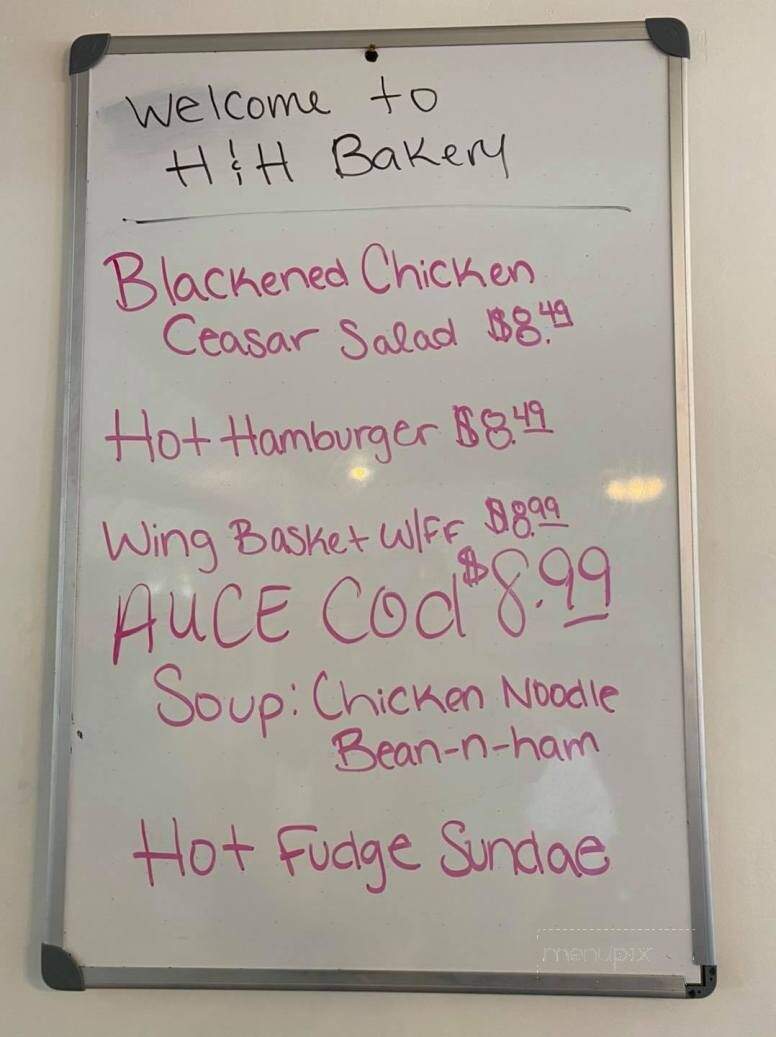 Welcome to
H & H Bakery
Blackened Chicken
Ceasar Salad $8.49
Hot Hamburger $8.49
Wing Basket W/FF $8.99
AUCE Cod $8.99
Soup: Chicken Noodle
Bean-n-ham
Hot Fudge Sundae
menupix